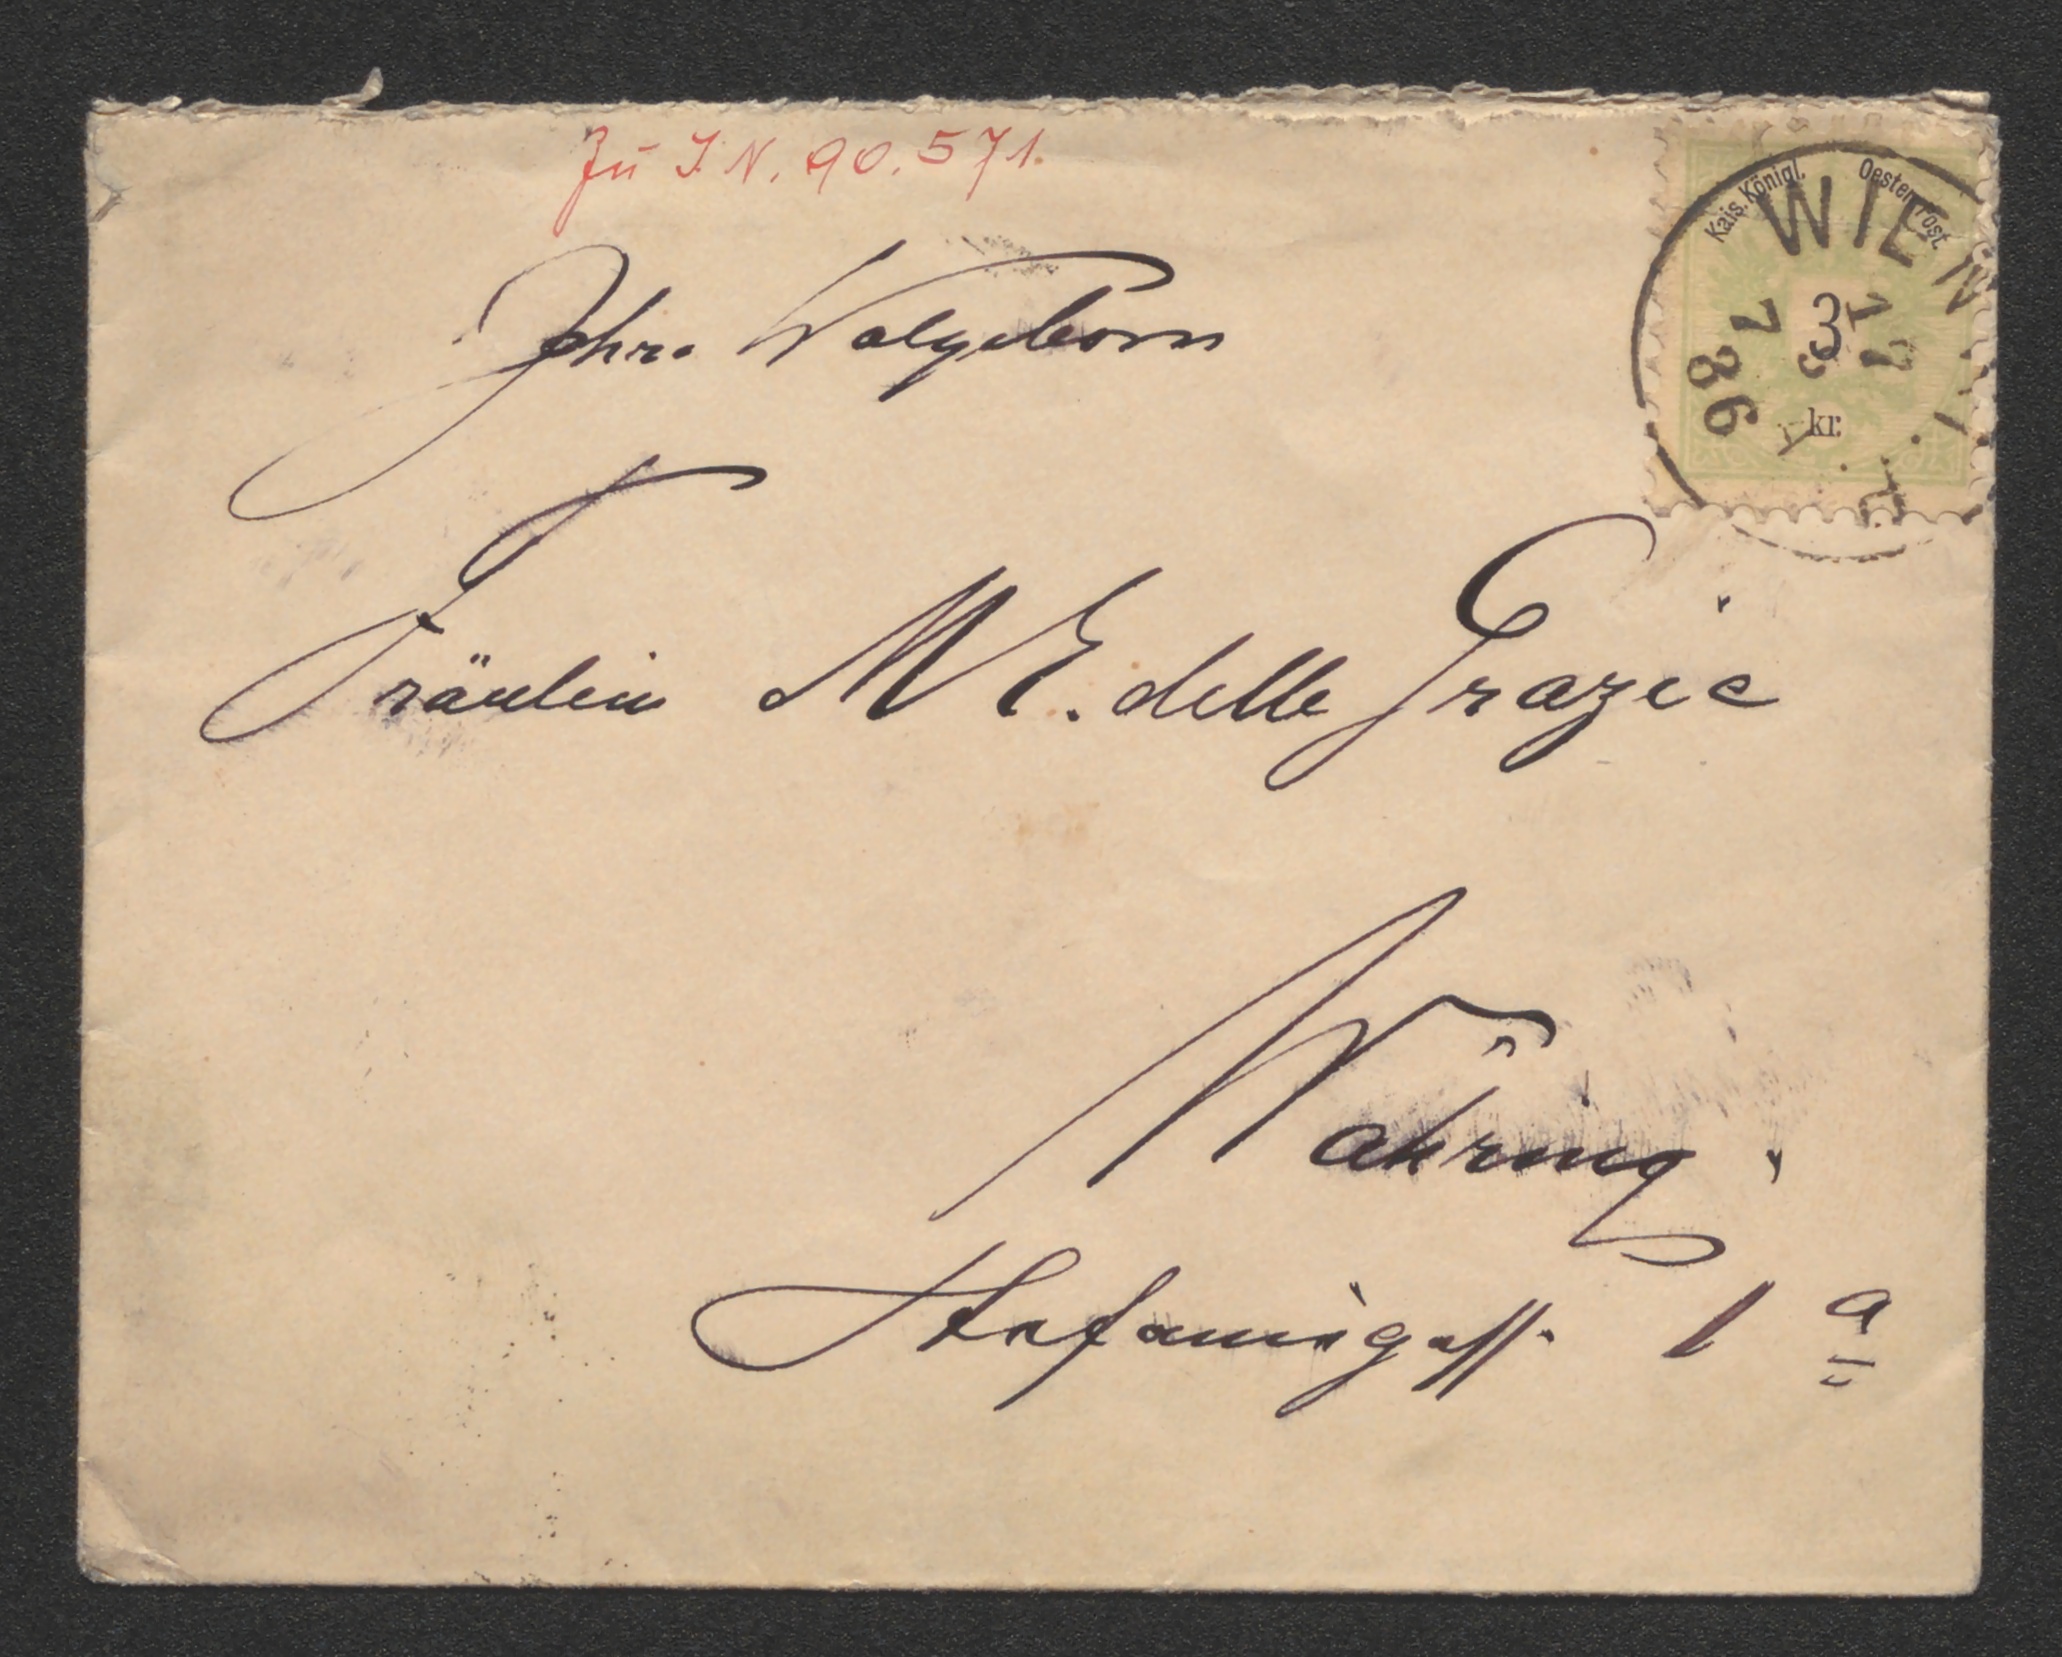 Zu I.N. 90.571.
Kais. Königl. Oesterr. Post.
WIEN
17
7
86
3
kr.
Ihr. Wolgeborn
Fräulein M. E. delle Grazie
Währing.
Stefaniegass. 1 a